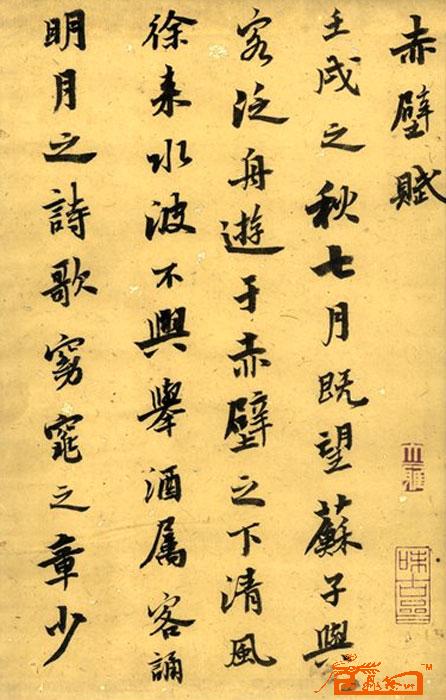 赤壁賦
壬戌之秋七月既望蘇子與
客泛舟遊于赤壁之下清風
徐来水波不興舉酒属客誦
明月之詩歌窈窕之章少